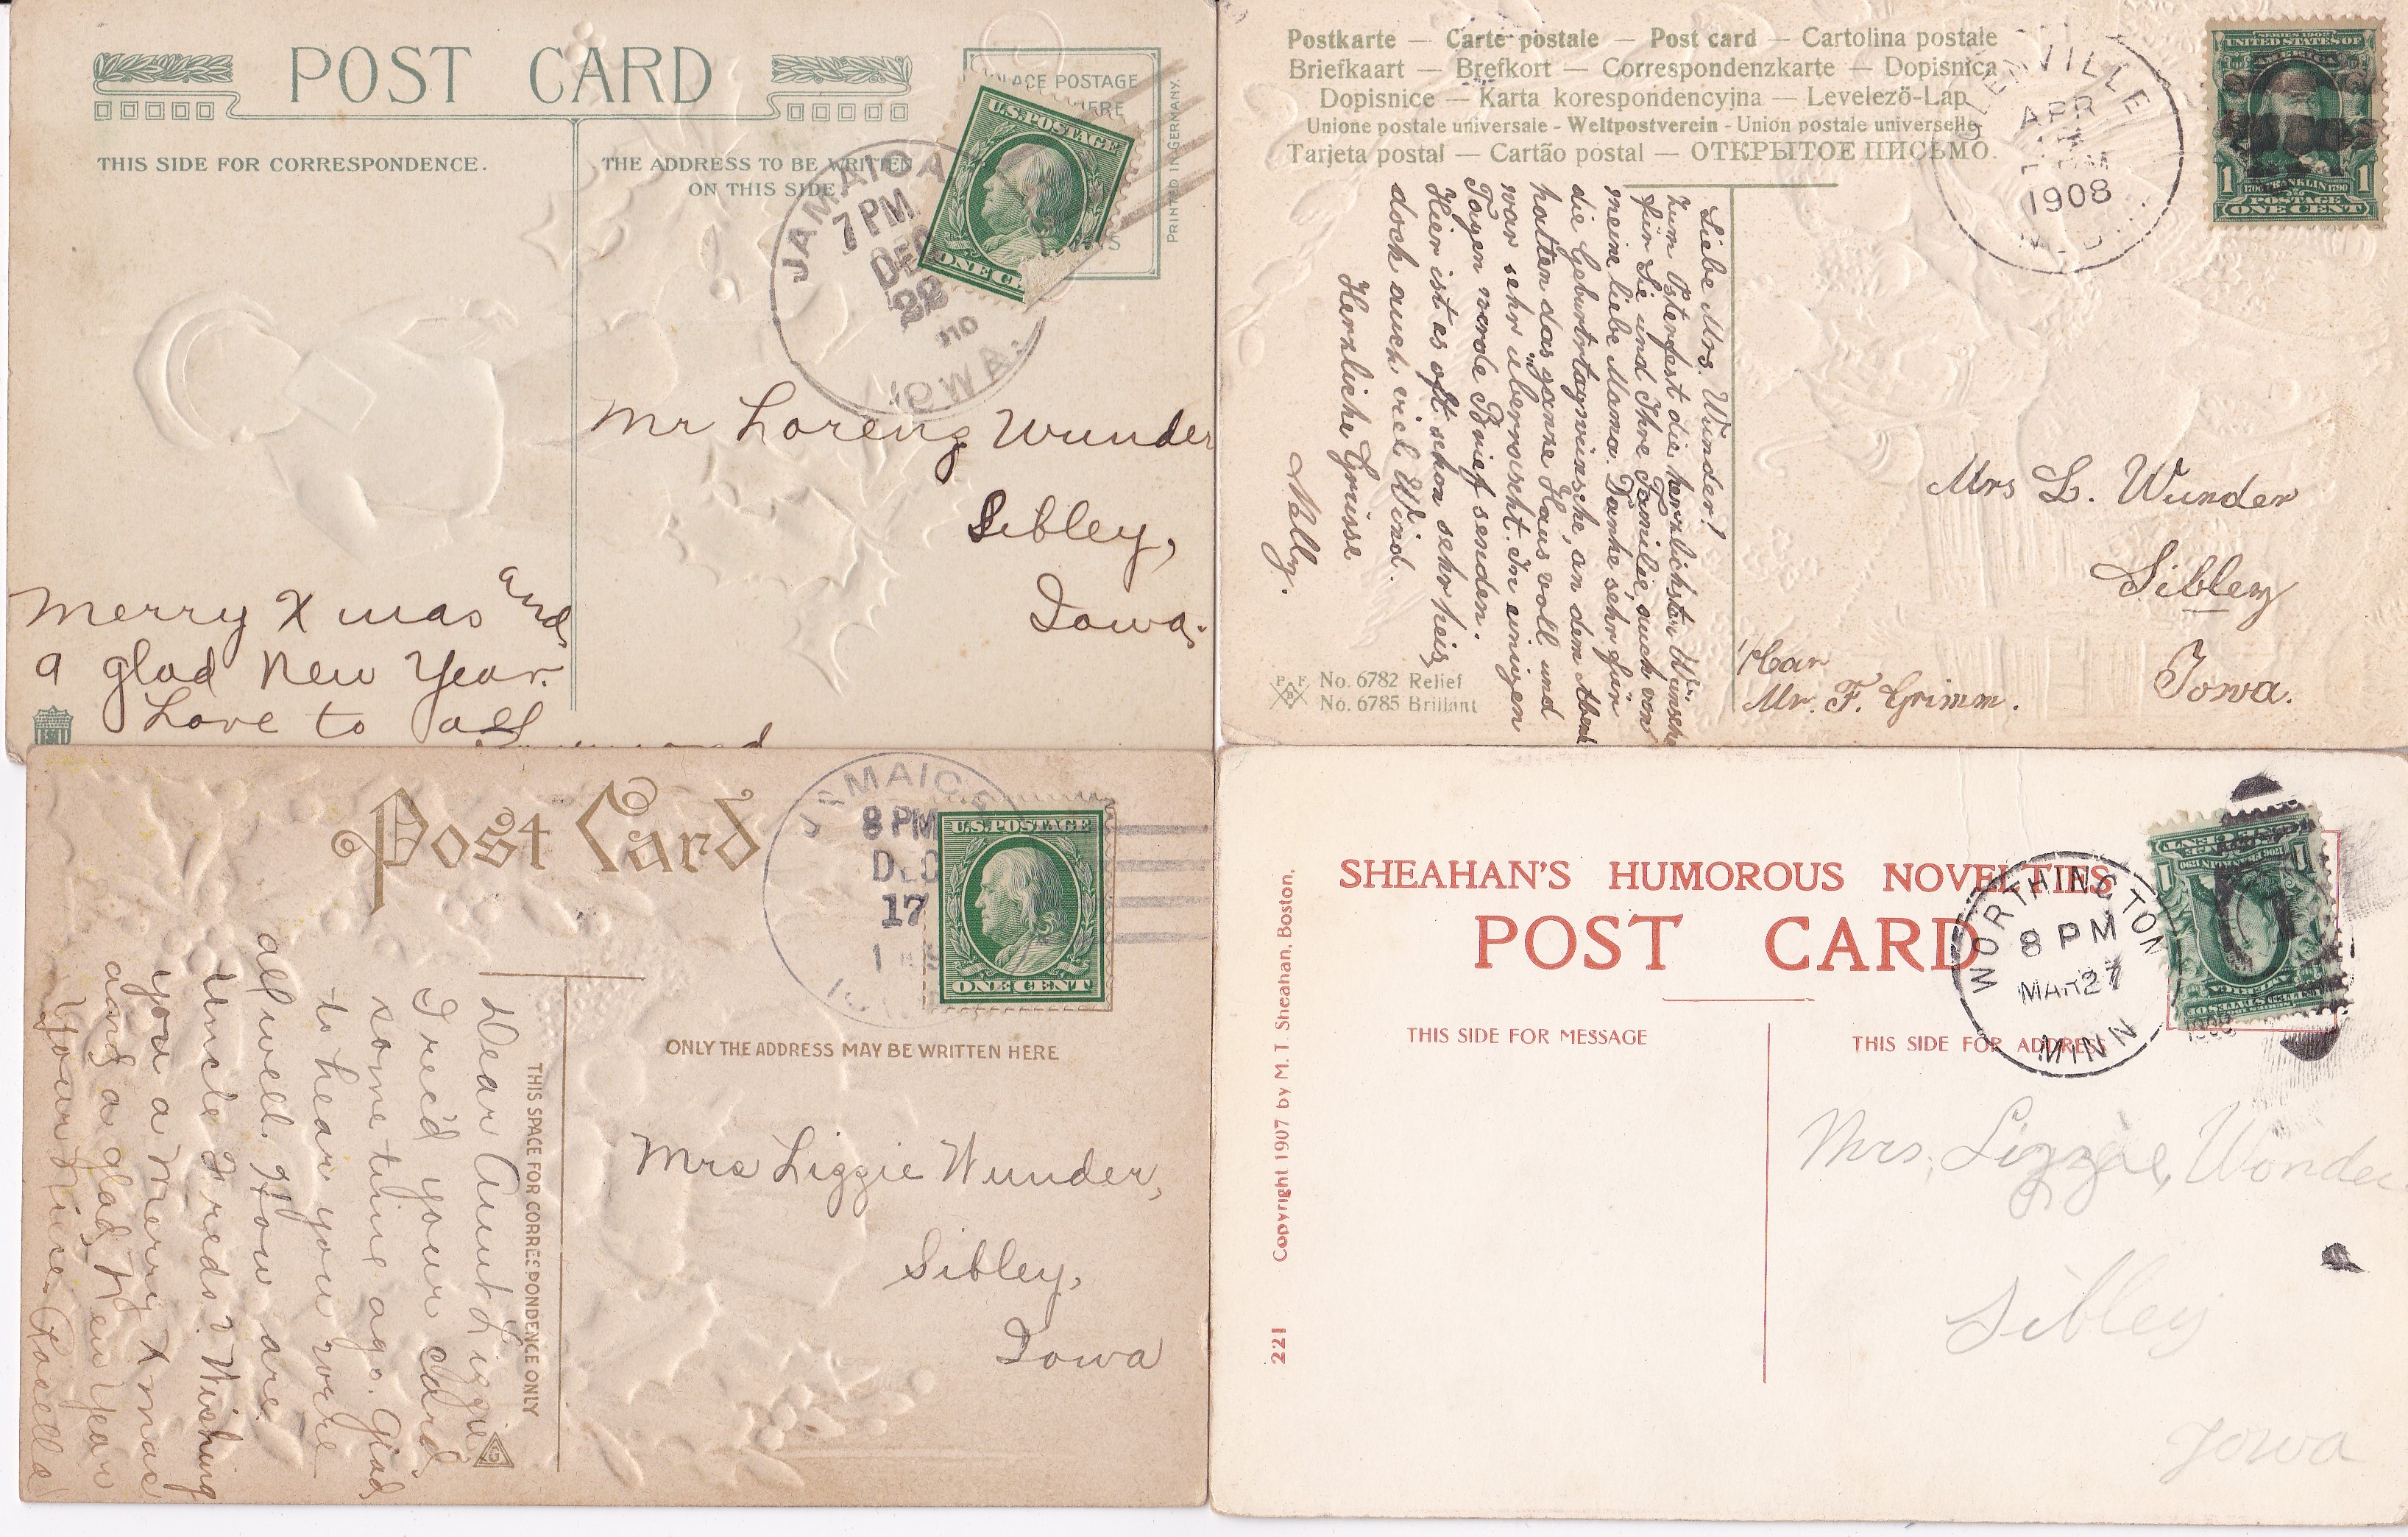 POST CARD
THIS SIDE FOR CORRESPONDENCE.
THE ADDRESS TO BE WRITTEN
ON THIS SIDE.
PLACE POSTAGE
HERE
PRINTED IN GERMANY.
U.S. POSTAGE
ONE C
JAMAICA
7 PM
DEC
22
IOWA.
Mr Lorenz Wunder
Sibley,
Iowa.
Merry Xmas and
a glad New Year.
Love to all
Postkarte — Carte postale — Post card — Cartolina postale
Briefkaart — Brefkort — Correspondenzkarte — Dopisnica
Dopisnice — Karta korespondencyjna — Levelező-Lap
Unione postale universale - Weltpostverein - Union postale universelle
Tarjeta postal — Cartão postal — ОТКРЫТОЕ ПИСЬМО.
VILLE
APR
1908
SERIES 1902
UNITED STATES OF
AMERICA
1 1706 FRANKLIN 1790 1
POSTAGE
ONE CENT
Liebe Mrs. Wunder!
Zum Osterfest die herzlichsten Wünsche
für Sie und Ihre Familie, auch von
meine liebe Mama. Danke sehr für
die Geburtstagwünsche, an dem Abend
hatten das ganze Haus voll und
war sehr überrascht. In einigen
Tagen werde Brief senden.
Hier ist es oft schon sehr heis,
doch auch viel Wind.
Herzliche Grüsse
Nelly.
Mrs L. Wunder
Sibley
Iowa.
Mr. F. Grimm.
P F B
No. 6782 Relief
No. 6785 Brillant
Post Card
JAMAICA
8 PM
DEC
17
U.S. POSTAGE
ONE CENT
ONLY THE ADDRESS MAY BE WRITTEN HERE
THIS SPACE FOR CORRESPONDENCE ONLY
Dear Aunt Lizzie
I rec'd your card
some time ago. Glad
to hear you were
all well. How are
Uncle Freds? Wishing
you a Merry Xmas
and a glad New Year
Your Niece Rosella
Mrs Lizzie Wunder,
Sibley,
Iowa
SHEAHAN'S HUMOROUS NOVELTIES
POST CARD
THIS SIDE FOR MESSAGE
THIS SIDE FOR ADDRESS
Copyright 1907 by M. T. Sheahan, Boston.
221
WORTHINGTON
8 PM
MAR 27
MINN
Mrs. Lizzie, Wonder
Sibley
Iowa